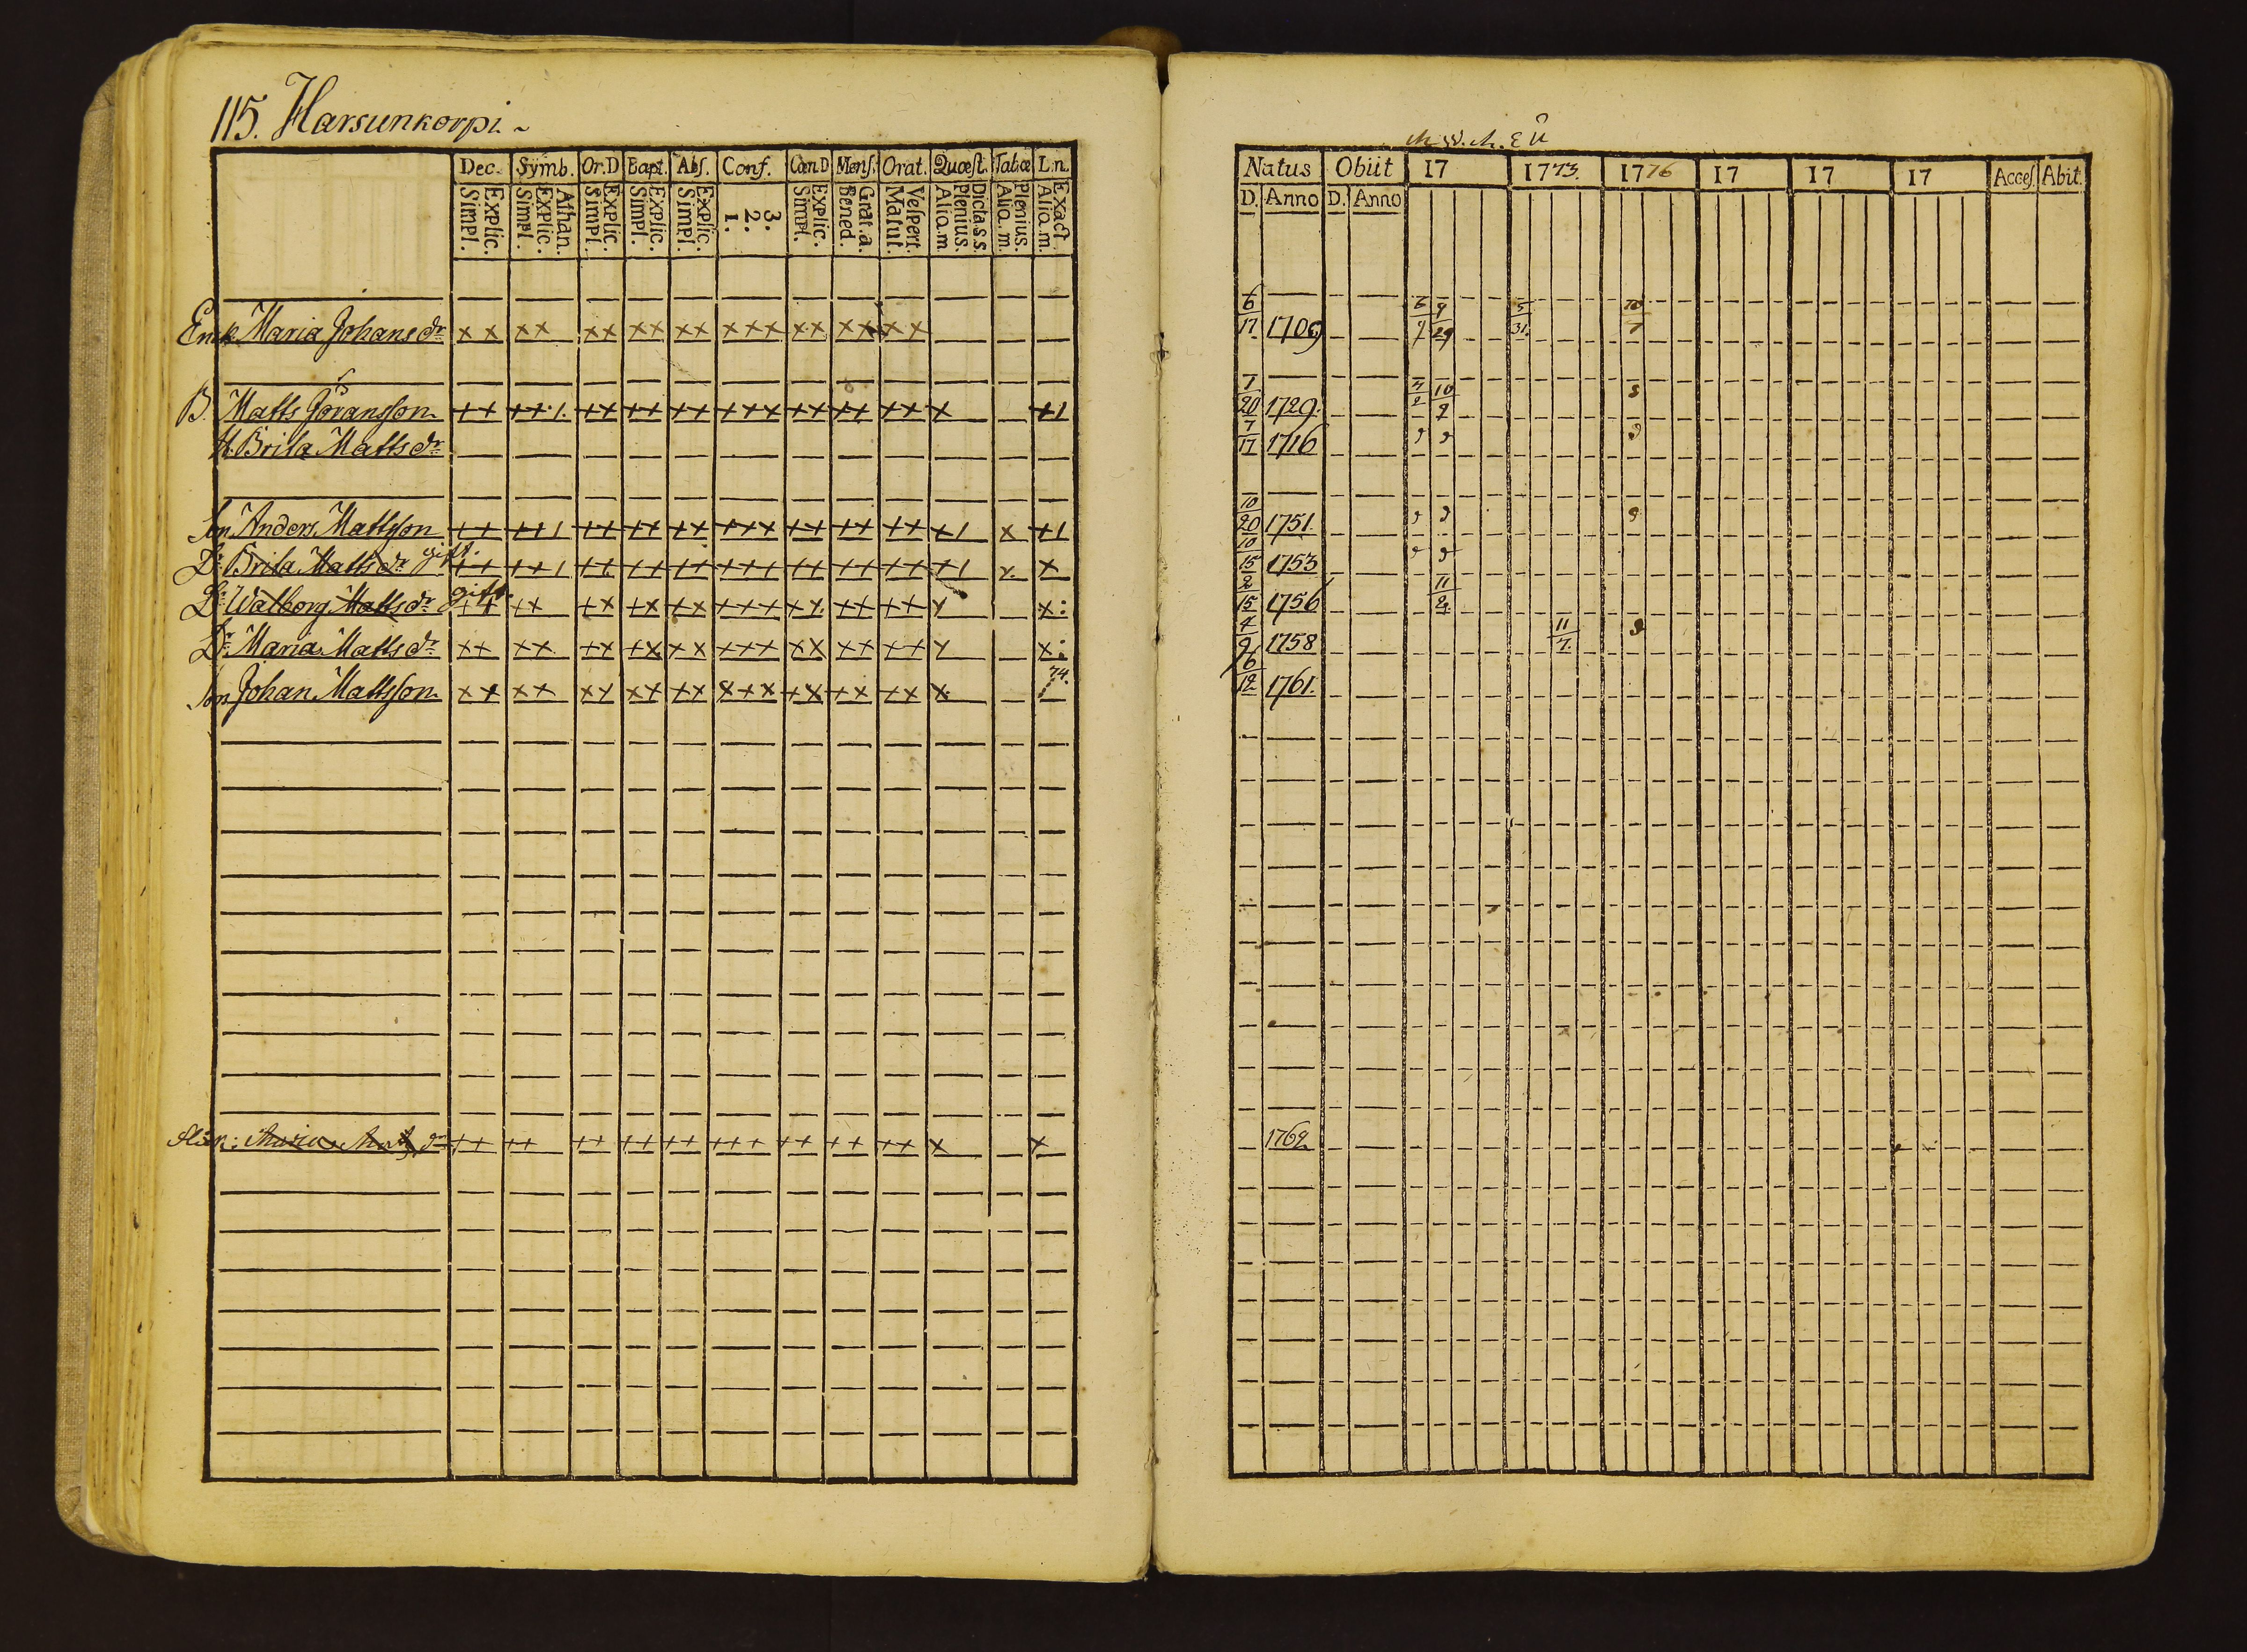 115. Harsunkorpi.
Dec. Symb. Or.D Bapt. Abs. Conf. Cœn.D Mens. Orat. Quæst. Tab.œ L.n.
Simpl. Explic. Simpl. Explic. Athan. Simpl. Explic. Simpl. Explic. Simpl. Explic. 1. 2. 3. Simpl. Explic. Bened. Grat.a. Matut. Vespert. Aliq.m Plenius. Dicta.s.s. Aliq.m. Plenius. Aliq.m. Exact.
Natus Obiit 17 1773. 1776 17 17 17 Acces. Abit.
D. Anno D. Anno
Enk. Maria Johans dr x x x x x x x x x x x x x x x x x x x 6/17 1709 6/7 9/29 5/31. 10/7
B. Matts Göransson ++ ++ 1. ++ ++ ++ +++ ++ ++ ++ x +1 7/20 1729. 10/2
H. Brita Matts dr 7/17 1716
Son Anders Mattsson ++ ++ 1 ++ ++ ++ +++ ++ ++ ++ +1 x +1 10/20 1751.
Dr Brita Matts dr gift. ++ ++ 1 ++ ++ ++ +++ ++ ++ ++ +1 x. x 10/15 1753
Dr Walborg Matts dr gift. ++ ++ ++ ++ ++ +++ ++ ++ ++ x x: 2/15 1756 11/21
Dr Maria Matts dr ++ ++ ++ ++ ++ +++ ++ ++ ++ x x: 4/9 1758 11/7.
Son Johan Mattsson ++ ++ ++ ++ ++ +++ ++ ++ ++ x 74. 6/12 1761.
Maria dr ++ ++ ++ ++ ++ +++ ++ ++ ++ x x 1762